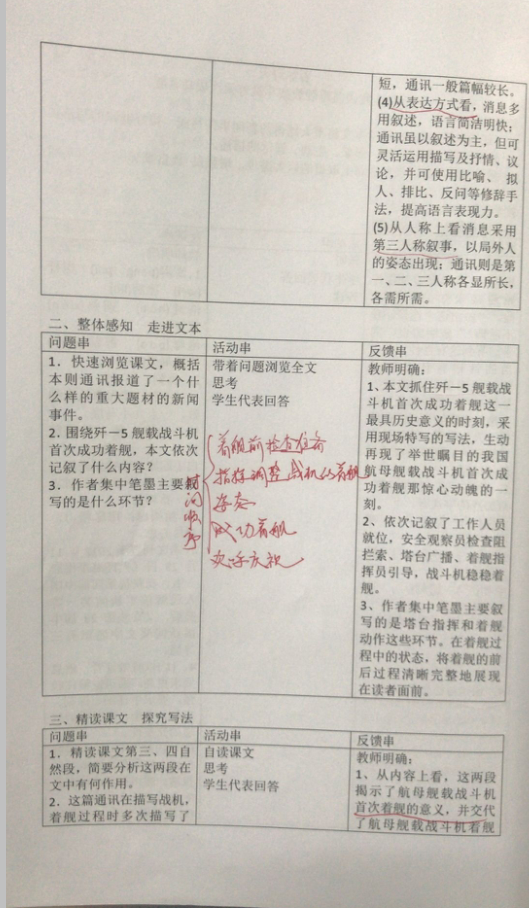 短，通讯一般篇幅较长。
(4)从表达方式看，消息多
用叙述，语言简洁明快；
通讯虽以叙述为主，但可
灵活运用描写及抒情、议
论，并可使用比喻、 拟
人、排比、反问等修辞手
法，提高语言表现力。
(5)从人称上看消息采用
第三人称叙事，以局外人
的姿态出现；通讯则是第
一、二、三人称各显所长，
各需所需。
二、整体感知 走进文本
问题串
1．快速浏览课文，概括
本则通讯报道了一个什
么样的重大题材的新闻
事件。
2．围绕歼－5 舰载战斗机
首次成功着舰，本文依次
记叙了什么内容？
3．作者集中笔墨主要叙
写的是什么环节？
时间顺序
活动串
带着问题浏览全文
思考
学生代表回答
着舰前检查准备
指挥调整战机的着舰
姿态
成功着舰
欢呼庆祝
反馈串
教师明确：
1、本文抓住歼－5 舰载战
斗机首次成功着舰这一
最具历史意义的时刻，采
用现场特写的写法，生动
再现了举世瞩目的我国
航母舰载战斗机首次成
功着舰那惊心动魄的一
刻。
2、依次记叙了工作人员
就位，安全观察员检查阻
拦索、塔台广播、着舰指
挥员引导，战斗机稳稳着
舰。
3、作者集中笔墨主要叙
写的是塔台指挥和着舰
动作这些环节。在着舰过
程中的状态，将着舰的前
后过程清晰完整地展现
在读者面前。
三、精读课文 探究写法
问题串
1．精读课文第三、四自
然段，简要分析这两段在
文中有何作用。
2．这篇通讯在描写战机，
着舰过程时多次描写了
活动串
自读课文
思考
学生代表回答
反馈串
教师明确：
1、从内容上看，这两段
揭示了航母舰载战斗机
首次着舰的意义，并交代
了航母舰载战斗机着舰